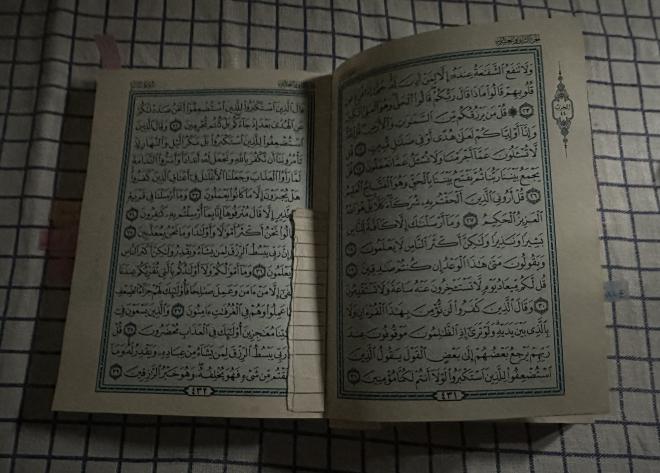 الجزء الثاني والعشرون
وَلَا تَنفَعُ ٱلشَّفَٰعَةُ عِندَهُۥٓ إِلَّا لِمَنۡ أَذِنَ لَهُۥۚ حَتَّىٰٓ إِذَا فُزِّعَ عَن
قُلُوبِهِمۡ قَالُواْ مَاذَا قَالَ رَبُّكُمۡۖ قَالُواْ ٱلۡحَقَّۖ وَهُوَ ٱلۡعَلِيُّ ٱلۡكَبِيرُ
٢٣ ۞ قُلۡ مَن يَرۡزُقُكُم مِّنَ ٱلسَّمَٰوَٰتِ وَٱلۡأَرۡضِۖ قُلِ ٱللَّهُۖ
وَإِنَّآ أَوۡ إِيَّاكُمۡ لَعَلَىٰ هُدًى أَوۡ فِي ضَلَٰلٖ مُّبِينٖ ٢٤ قُل
لَّا تُسۡـَٔلُونَ عَمَّآ أَجۡرَمۡنَا وَلَا نُسۡـَٔلُ عَمَّا تَعۡمَلُونَ ٢٥ قُلۡ
يَجۡمَعُ بَيۡنَنَا رَبُّنَا ثُمَّ يَفۡتَحُ بَيۡنَنَا بِٱلۡحَقِّ وَهُوَ ٱلۡفَتَّاحُ ٱلۡعَلِيمُ
٢٦ قُلۡ أَرُونِيَ ٱلَّذِينَ أَلۡحَقۡتُم بِهِۦ شُرَكَآءَۖ كَلَّاۚ بَلۡ هُوَ ٱللَّهُ
ٱلۡعَزِيزُ ٱلۡحَكِيمُ ٢٧ وَمَآ أَرۡسَلۡنَٰكَ إِلَّا كَآفَّةٗ لِّلنَّاسِ
بَشِيرٗا وَنَذِيرٗا وَلَٰكِنَّ أَكۡثَرَ ٱلنَّاسِ لَا يَعۡلَمُونَ ٢٨
وَيَقُولُونَ مَتَىٰ هَٰذَا ٱلۡوَعۡدُ إِن كُنتُمۡ صَٰدِقِينَ ٢٩
قُل لَّكُم مِّيعَادُ يَوۡمٖ لَّا تَسۡتَـٔۡخِرُونَ عَنۡهُ سَاعَةٗ وَلَا تَسۡتَقۡدِمُونَ
٣٠ وَقَالَ ٱلَّذِينَ كَفَرُواْ لَن نُّؤۡمِنَ بِهَٰذَا ٱلۡقُرۡءَانِ وَلَا
بِٱلَّذِي بَيۡنَ يَدَيۡهِۗ وَلَوۡ تَرَىٰٓ إِذِ ٱلظَّٰلِمُونَ مَوۡقُوفُونَ عِندَ
رَبِّهِمۡ يَرۡجِعُ بَعۡضُهُمۡ إِلَىٰ بَعۡضٍ ٱلۡقَوۡلَ يَقُولُ ٱلَّذِينَ
ٱسۡتُضۡعِفُواْ لِلَّذِينَ ٱسۡتَكۡبَرُواْ لَوۡلَآ أَنتُمۡ لَكُنَّا مُؤۡمِنِينَ ٣١
٤٣١
الحزب
٤٤
قَالَ ٱلَّذِينَ ٱسۡتَكۡبَرُواْ لِلَّذِينَ ٱسۡتُضۡعِفُوٓاْ أَنَحۡنُ صَدَدۡنَٰكُمۡ
عَنِ ٱلۡهُدَىٰ بَعۡدَ إِذۡ جَآءَكُمۖ بَلۡ كُنتُم مُّجۡرِمِينَ ٣٢ وَقَالَ ٱلَّذِينَ
ٱسۡتُضۡعِفُواْ لِلَّذِينَ ٱسۡتَكۡبَرُواْ بَلۡ مَكۡرُ ٱلَّيۡلِ وَٱلنَّهَارِ إِذۡ
تَأۡمُرُونَنَآ أَن نَّكۡفُرَ بِٱللَّهِ وَنَجۡعَلَ لَهُۥٓ أَندَادٗاۚ وَأَسَرُّواْ ٱلنَّدَامَةَ
لَمَّا رَأَوُاْ ٱلۡعَذَابَۚ وَجَعَلۡنَا ٱلۡأَغۡلَٰلَ فِيٓ أَعۡنَاقِ ٱلَّذِينَ كَفَرُواْۖ
هَلۡ يُجۡزَوۡنَ إِلَّا مَا كَانُواْ يَعۡمَلُونَ ٣٣ وَمَآ أَرۡسَلۡنَا فِي قَرۡيَةٖ
إِلَّا قَالَ مُتۡرَفُوهَآ إِنَّا بِمَآ أُرۡسِلۡتُم بِهِۦ كَٰفِرُونَ ٣٤
نَحۡنُ أَكۡثَرُ أَمۡوَٰلٗا وَأَوۡلَٰدٗا وَمَا نَحۡنُ بِمُعَذَّبِينَ ٣٥
إِنَّ رَبِّي يَبۡسُطُ ٱلرِّزۡقَ لِمَن يَشَآءُ وَيَقۡدِرُ وَلَٰكِنَّ أَكۡثَرَ ٱلنَّاسِ
٣٦ وَمَآ أَمۡوَٰلُكُمۡ وَلَآ أَوۡلَٰدُكُم بِٱلَّتِي تُقَرِّبُكُمۡ عِندَنَا
إِلَّا مَنۡ ءَامَنَ وَعَمِلَ صَٰلِحٗا فَأُوْلَٰٓئِكَ لَهُمۡ جَزَآءُ ٱلضِّعۡفِ
عَمِلُواْ وَهُمۡ فِي ٱلۡغُرُفَٰتِ ءَامِنُونَ ٣٧ وَٱلَّذِينَ يَسۡعَوۡنَ فِيٓ
مُعَٰجِزِينَ أُوْلَٰٓئِكَ فِي ٱلۡعَذَابِ مُحۡضَرُونَ ٣٨ قُلۡ
رَبِّي يَبۡسُطُ ٱلرِّزۡقَ لِمَن يَشَآءُ مِنۡ عِبَادِهِۦ وَيَقۡدِرُ لَهُۥۚ وَمَآ
مِّن شَيۡءٖ فَهُوَ يُخۡلِفُهُۥۖ وَهُوَ خَيۡرُ ٱلرَّٰزِقِينَ ٣٩
٤٣٢